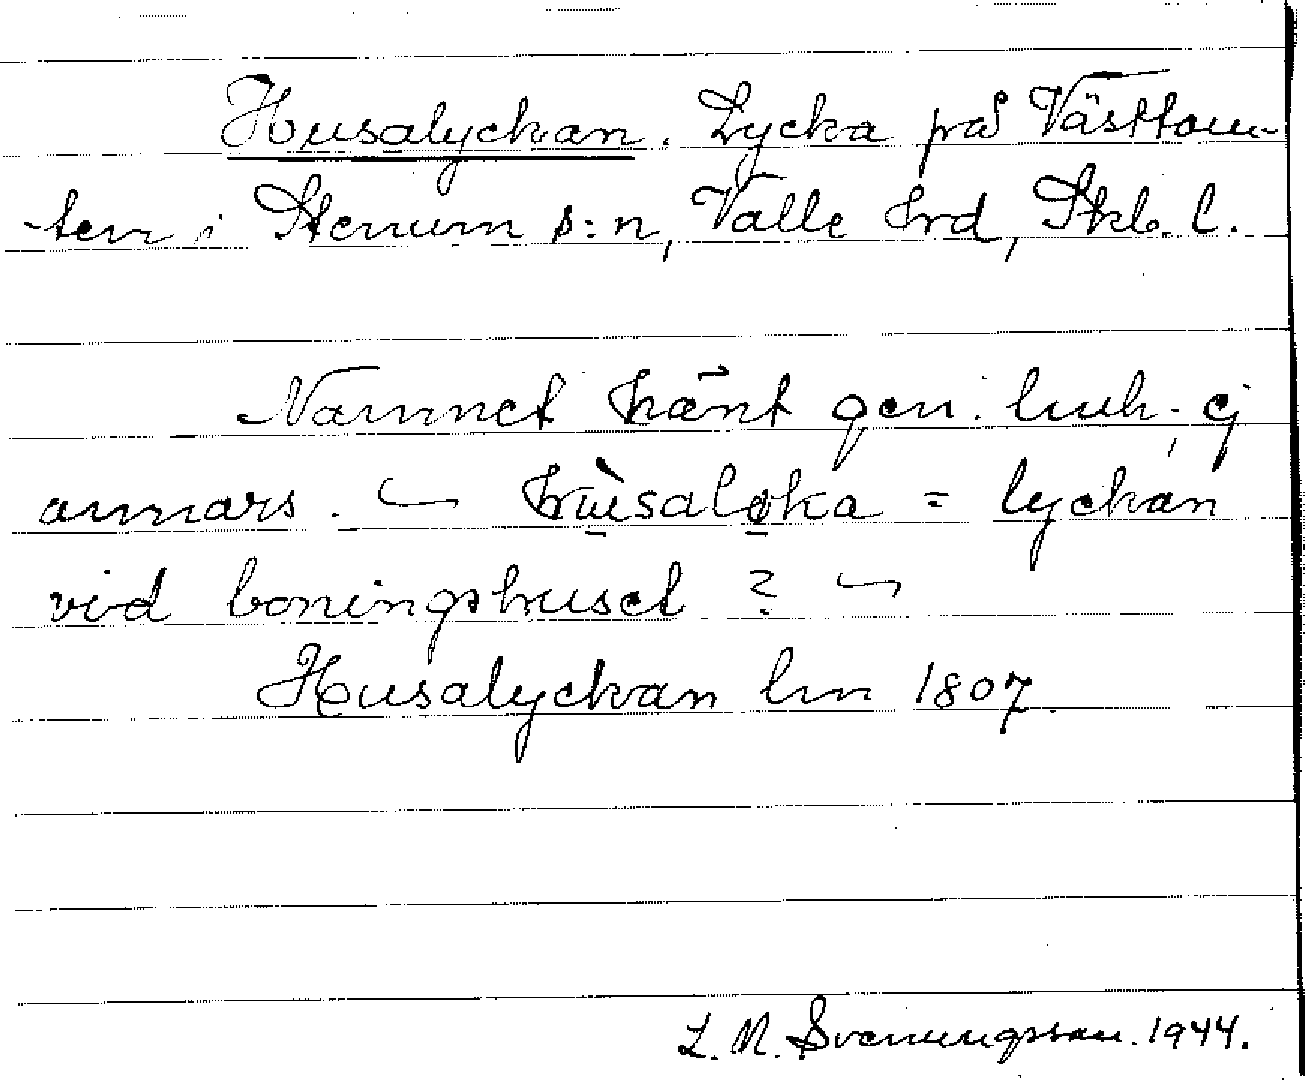 Husalyckan. Lycka på Västtom-
ten i Stenum s:n, Valle hrd, Skb. l.
Namnet känt gen. luh; ej
annars. ⌣ hùsaløka = lyckan
vid boningshuset ? ⌣
Husalyckan lm 1807.
L. M. Svenungsson. 1944.